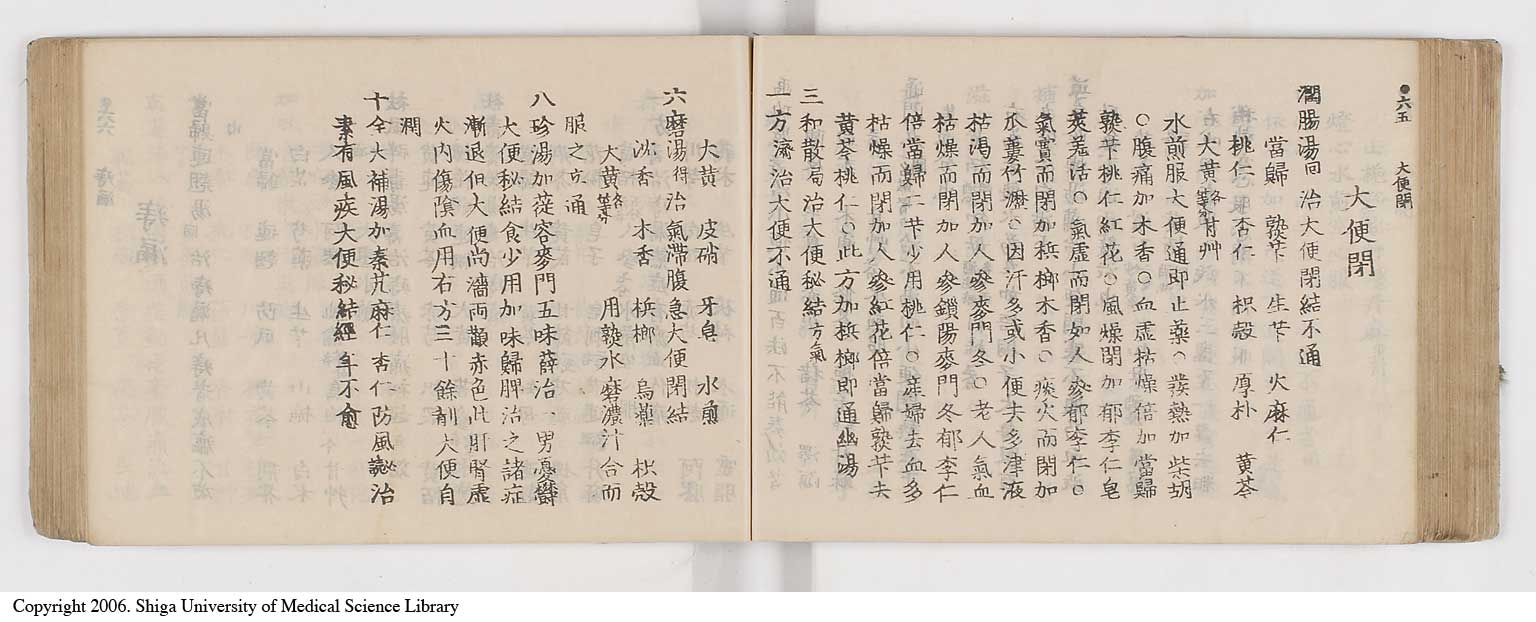 ●六五 大便閉
大便閉
潤腸湯回 治大便閉結不通
當歸 熟芐 生芐 火麻仁
桃仁 杏仁 枳殻 厚朴 黄芩
大黄各等分 甘艸
水煎服大便通即止藥○發熱加柴胡
○腹痛加木香○血虚枯燥倍加當歸
熟芐桃仁紅花○風燥閉加郁李仁皂
莢羗活○氣虚而閉加人參郁李仁○
氣實而閉加檳榔木香○痰火而閉加
瓜蔞竹瀝○因汗多或小便去多津液
枯渇而閉加人參麥門冬○老人氣血
枯燥而閉加人參鎖陽麥門冬郁李仁
倍當歸二芐少用桃仁○産婦去血多
枯燥而閉加人參紅花倍當歸熟芐去
黄芩桃仁○此方加檳榔即通幽湯
三和散局治大便秘結方氣
一方濟治大便不通
大黄 皮硝 牙皂 水煎
六磨湯得治氣滞腹急大便閉結
沈香 木香 檳榔 烏藥 枳殻
大黄各等分 用熟水磨濃汁合而
服之立通
八珍湯加蓯容麥門五味薛治一男憂欝
大便秘結食少用加味歸脾治之諸症
漸退但大便尚濇両顴赤色此肝腎虚
火内傷陰血用右方三十餘剤大便自
潤
十全大補湯加秦艽麻仁杏仁防風 治
素有風疾大便秘結經年不愈